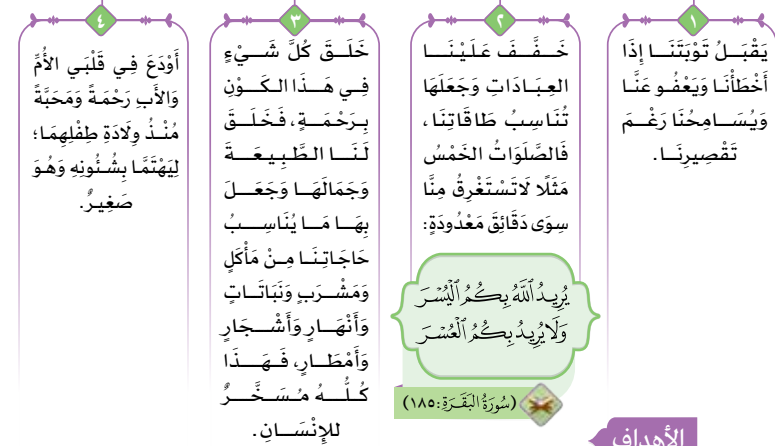 ١
يَقْبَــلُ تَوْبَتَنَــا إِذَا
أَخْطَأْنَـا وَيَعْفُـو عَنَّـا
وَيُسَــامِحُنَا رَغْــمَ
تَقْصِيرِنَــا.
٢
خَــفَّــفَ عَـلَـيْـنَــا
العِبَـادَاتِ وَجَعَلَهَا
تُنَاسِبُ طَاقَاتِنَا،
فَالصَّلَوَاتُ الخَمْسُ
مَثَلًا لَاتَسْتَغْرِقُ مِنَّا
سِوَى دَقَائِقَ مَعْدُودَةٍ:
يُرِيدُ ٱللَّهُ بِكُمُ ٱلْيُسْرَ
وَلَا يُرِيدُ بِكُمُ ٱلْعُسْرَ
(سُورَةُ البَقَرَةِ: ١٨٥)
٣
خَلَــقَ كُلَّ شَــيْءٍ
فِـي هَــذَا الـكَــوْنِ
بِـرَحْمَـةٍ، فَخَـلَـقَ
لَنَــا الطَّبِيعَــةَ
وَجَمَالَهَــا وَجَعَــلَ
بِهَــا مَــا يُنَاسِــبُ
حَاجَاتِنَـا مِـنْ مَأْكَلٍ
وَمَشْــرَبٍ وَنَبَاتَــاتٍ
وَأَنْهَــارٍ وَأَشْــجَارٍ
وَأَمْطَــارٍ، فَـهَــذَا
كُـلُّــهُ مُـسَــخَّــرٌ
للإِنْسَــانِ.
٤
أَوْدَعَ فِـي قَلْبَـي الأُمِّ
وَالأَبِ رَحْمَـةً وَمَحَبَّةً
مُنْـذُ وِلَادَةِ طِفْلِهِمَـا؛
لِيَهْتَمَّـا بِشُـئُونِهِ وَهُـوَ
صَغِيـرٌ.
الأهداف